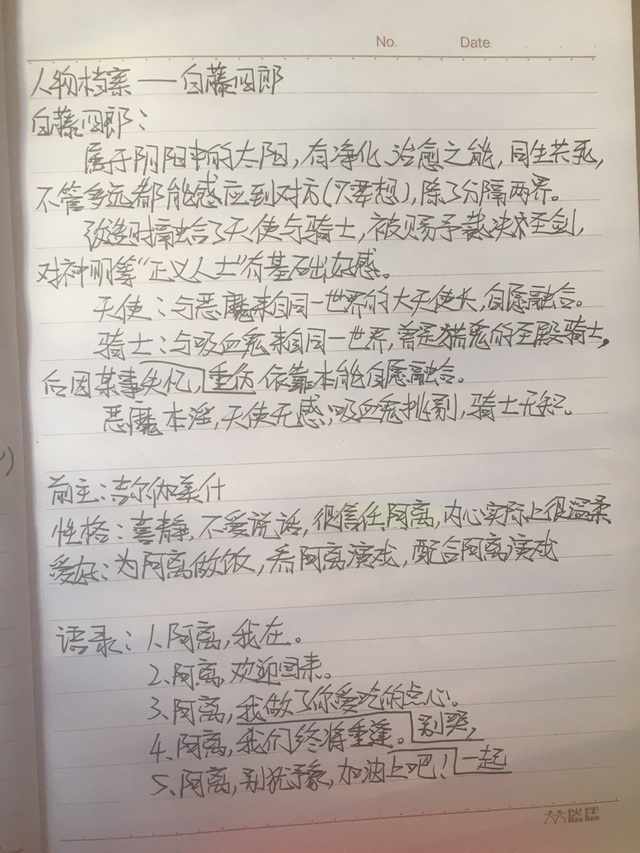 No. Date.
人物档案——白藤四郎
白藤四郎：
属于阴阳中的太阳，有净化、治愈之能，同生共死，
不管多远都能感应到对方(只要想)，除了分隔两界。
改造时融合了天使与骑士，被赐予裁决圣剑，
对神明等“正义人士”有基础好感。
天使：与恶魔来自同一世界的大天使长，自愿融合。
骑士：与吸血鬼来自同一世界，曾是猎鬼的圣殿骑士，
后因某事失忆，重伤依靠本能自愿融合。
恶魔本淫，天使无感；吸血鬼挑剔，骑士无知。
前主：吉尔伽美什
性格：喜静，不爱说话，很信任阿离，内心实际上很温柔
爱好：为阿离做饭，看阿离演戏，配合阿离演戏
语录：1、阿离，我在。
2、阿离，欢迎回来。
3、阿离，我做了你爱吃的点心。
4、阿离，我们终将重逢。别哭，
5、阿离，别犹豫，加油上吧！一起
伙伴